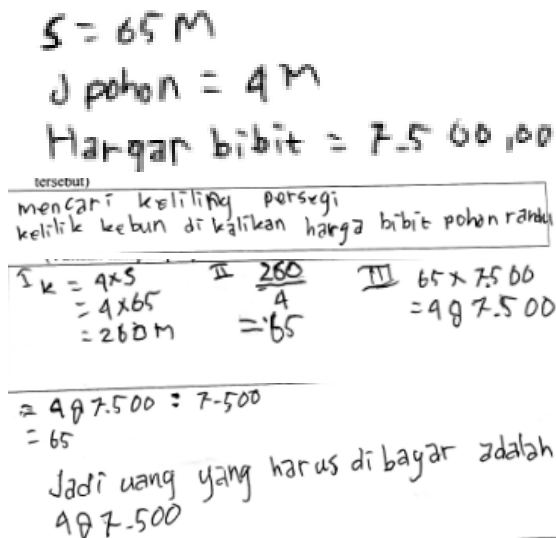 S = 65 M
J pohon = 4 M
Hargar bibit = 7.500,00
tersebut)
mencari keliling persegi
kelilik kebun di kalikan harga bibit pohon randu
I K = 4×S
= 4×65
= 260 M
II 260
4
= 65
III 65 × 7.500
= 487.500
= 487.500 : 7.500
= 65
Jadi uang yang harus dibayar adalah
487.500